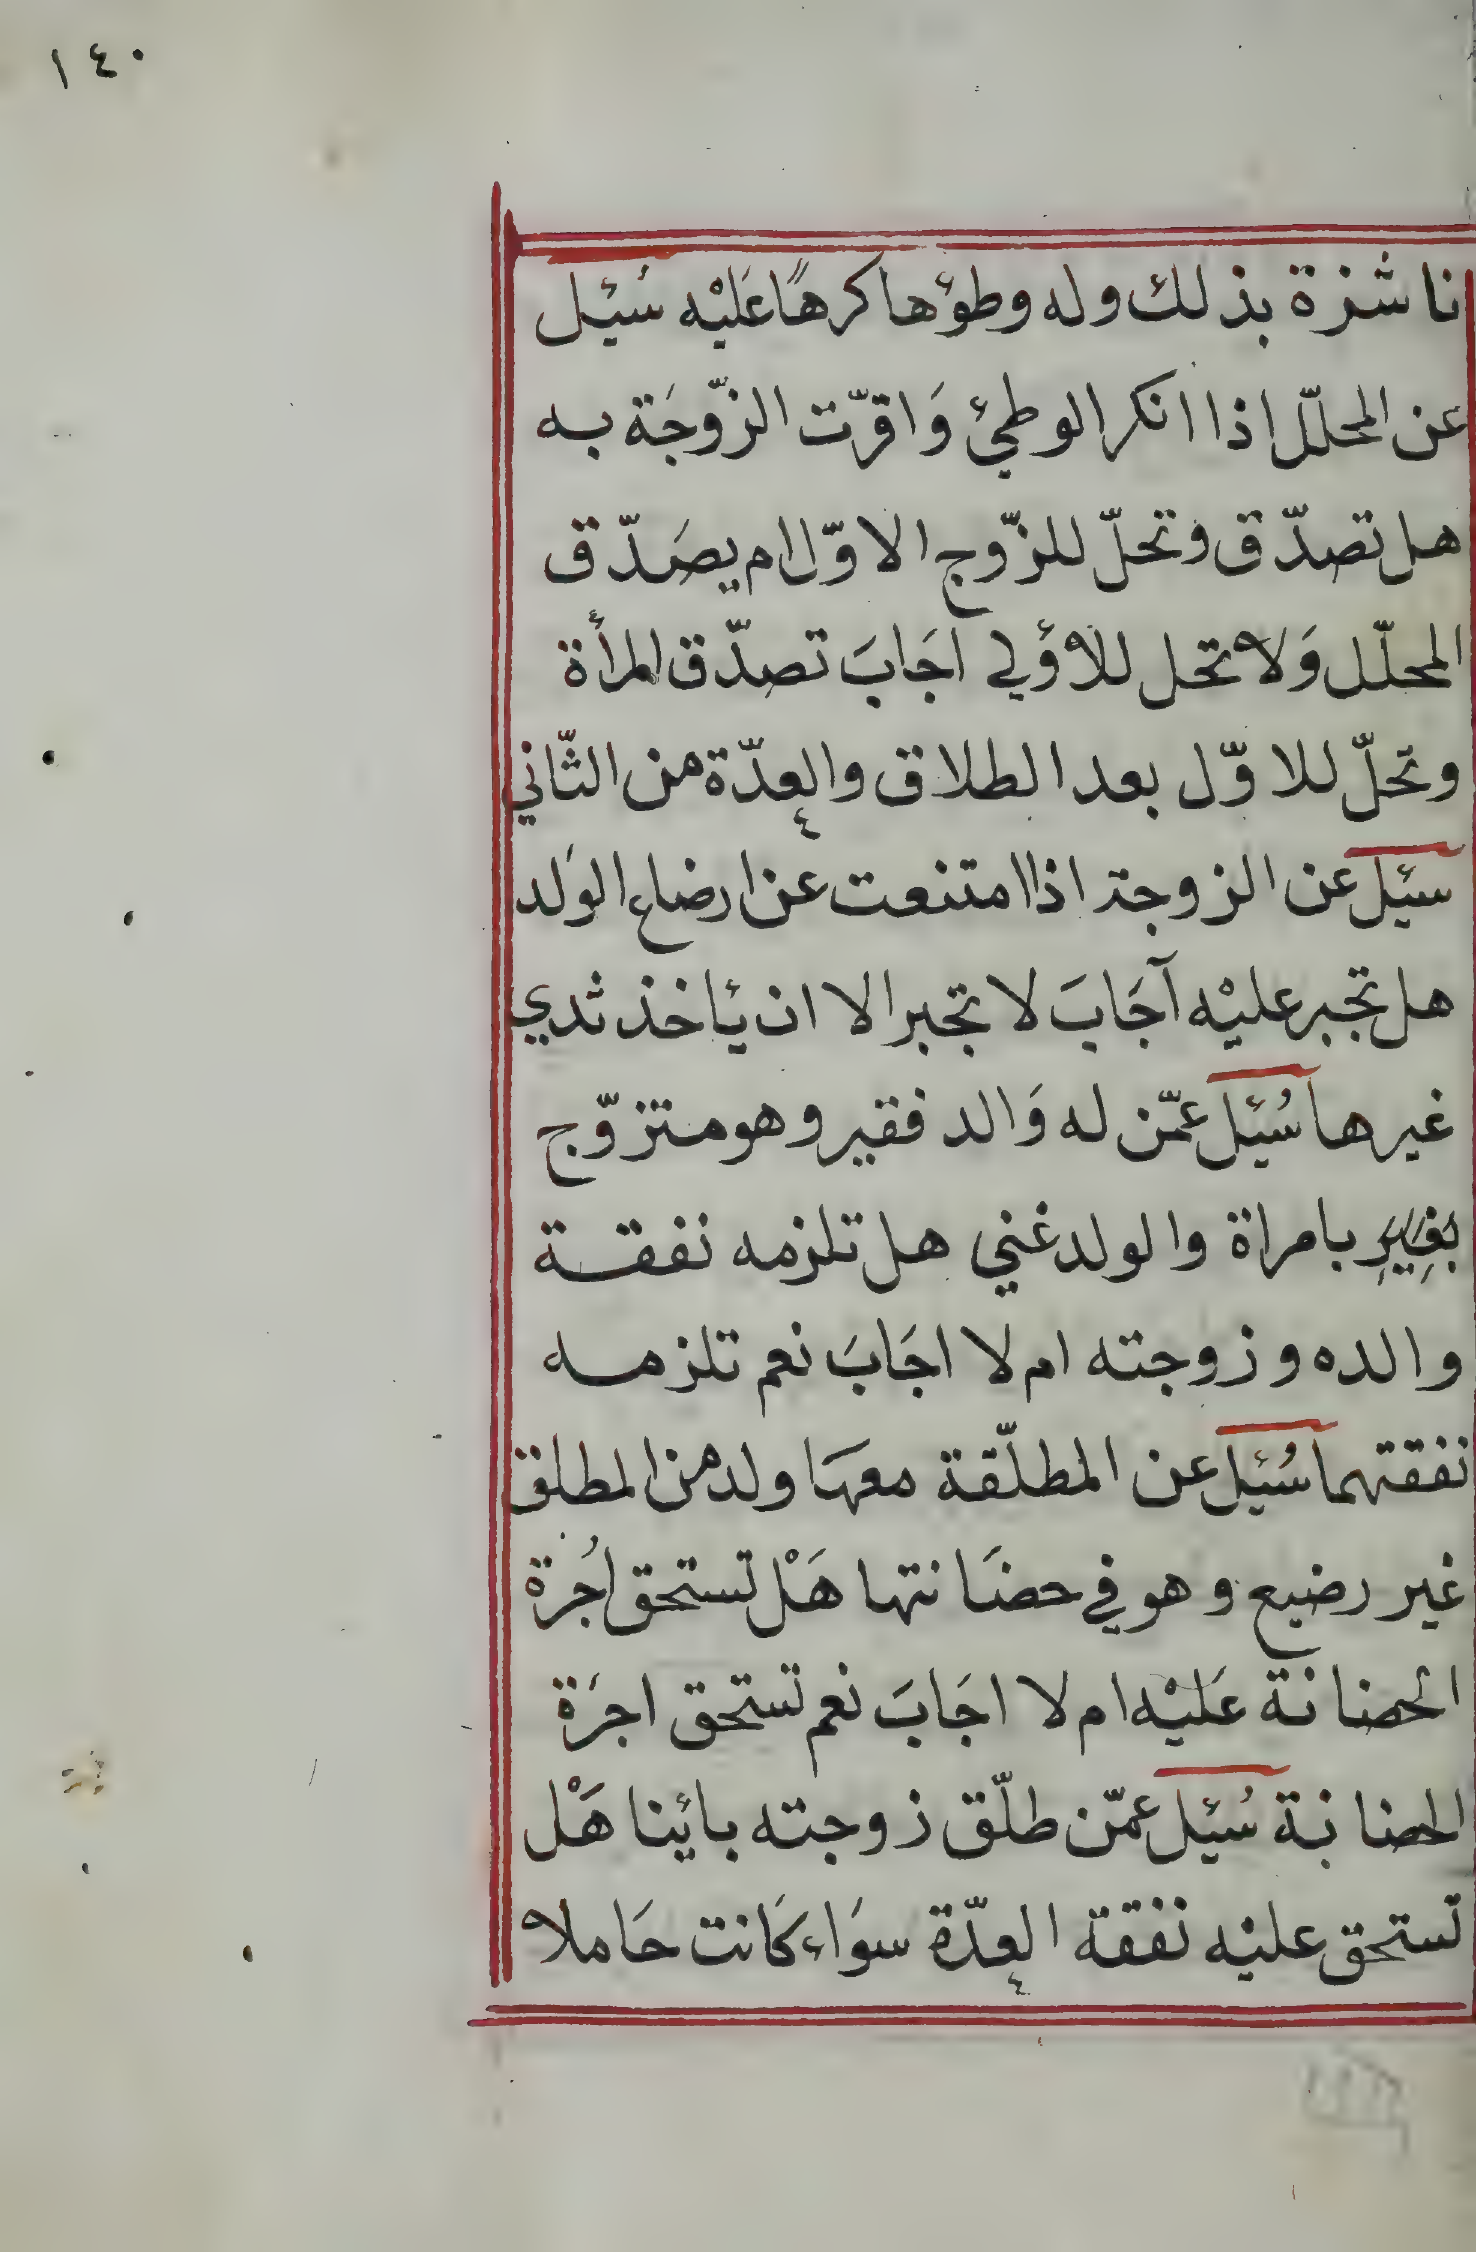 ١٤٠
ناشزة بذلك وله وطؤها كرهًا عَليْه سُئِل
عن المحلّل اذا انكر الوطئ وَاقرّت الزّوجَة به
هل تصدّق وتحلّ للزّوج الاوّل ام يصَدّق
المحلّل وَلا تحل للأولي اجَابَ تصدّق المرأة
وتحلّ للاوّل بعد الطلاق والعدّة من الثّاني
سئيل عن الزوجة اذا امتنعت عن ارضاع الوَلد
هل تجبر عليْه آجَابَ لا تجبر الا ان يأخذ ثدي
غيرها سُئيل عمّن له وَالد فقير وهو متزوّج
بامراة والولد غني هل تلزمه نفقة
والده وزوجته ام لا اجَابَ نعم تلزمه
نفقتهما سُئيل عن المطلّقة معهَا ولد من المطلق
غير رضيع وهو في حضَانتها هَلْ تستحق اجُرة
الحضانة عَليْه ام لا اجَابَ نعم تستحق اجرَة
الحضانة سُئيل عمّن طلّق زوجته بائنا هَلْ
تستحق عليْه نفقة العدّة سوَاء كَانت حَاملا